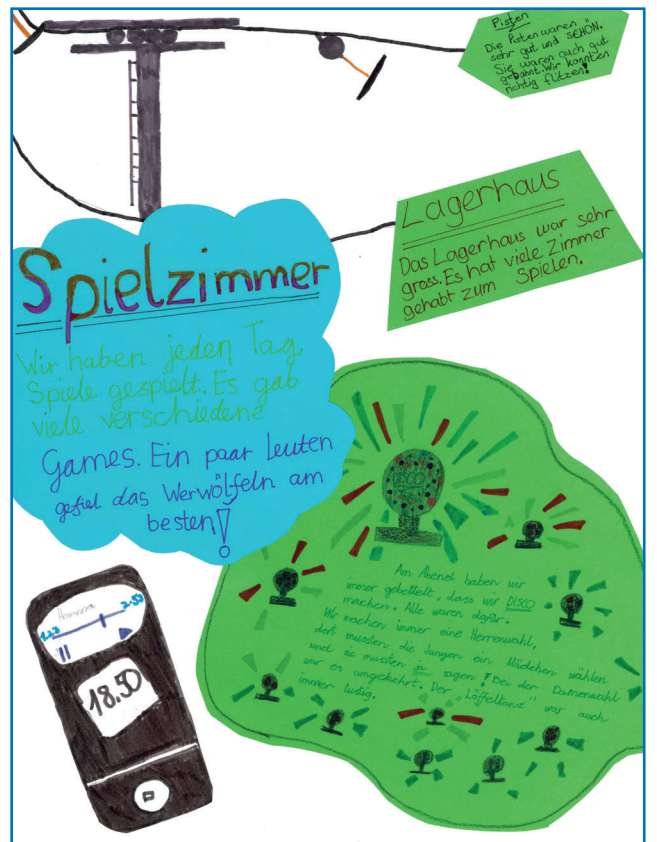 Pisten
Die Pisten waren
sehr gut und SCHÖN.
Sie waren auch gut
gebahnt. Wir konnten
richtig flitzen!
Lagerhaus
Das Lagerhaus war sehr
gross. Es hat viele Zimmer
gehabt zum Spielen.
Spielzimmer
Wir haben jeden Tag
Spiele gespielt. Es gab
viele verschiedene
Games. Ein paar leuten
gefiel das Werwölfeln am
besten!
DISCO
Am Abend haben wir
immer gebettelt, dass wir DISCO
machen. Alle waren dafür.
Wir machen immer eine Herrenwahl,
dort mussten die Jungen ein Mädchen wählen
und sie mussten ja sagen! Bei der Damenwahl
war es umgekehrt. Der "Löffeltanz" war auch
immer lustig.
2.50
18.50